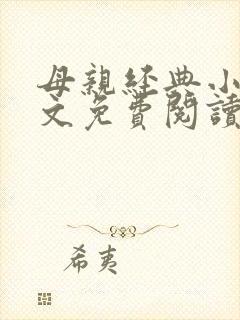 母親經典小
文免費閱讀
希夷